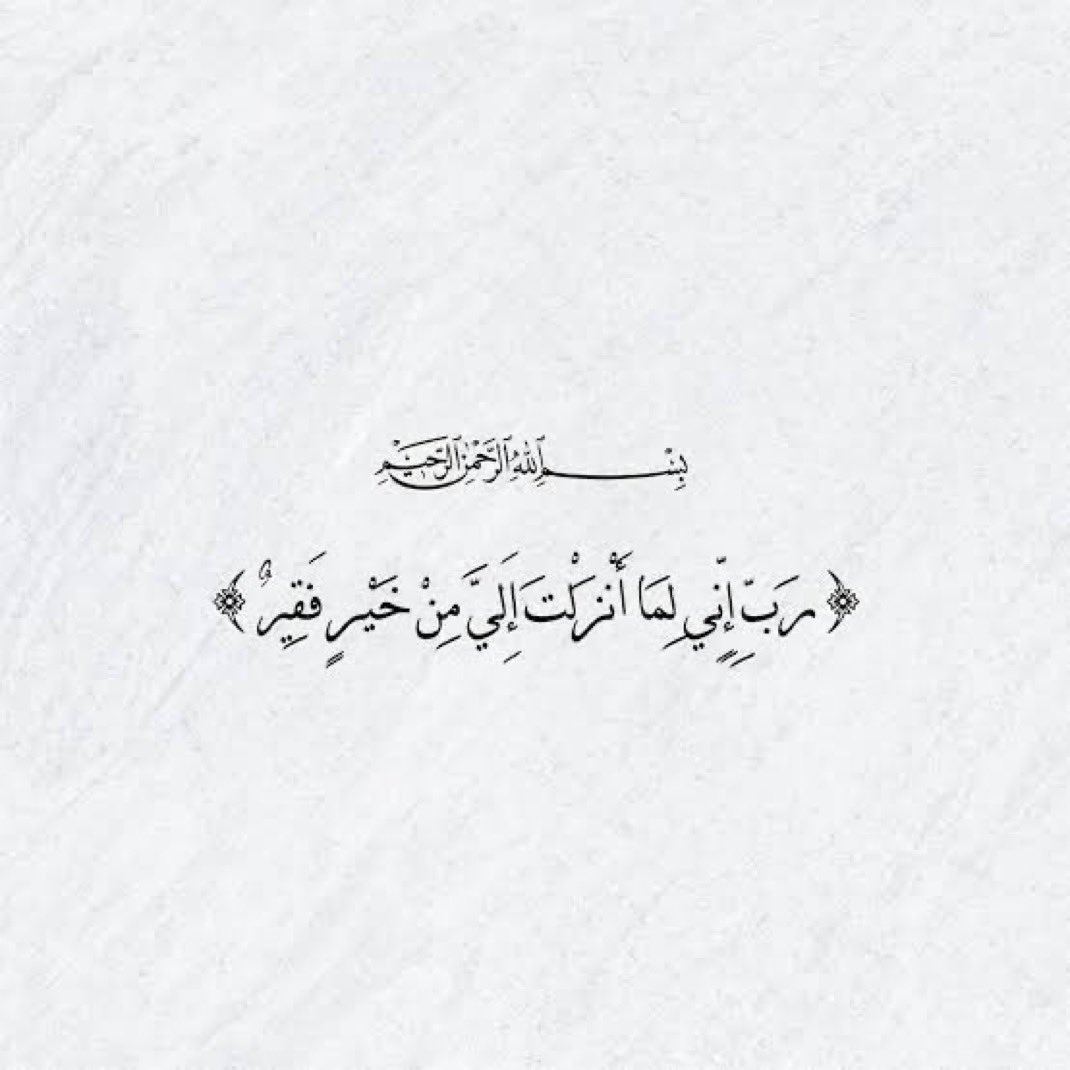 بِسْمِ ٱللَّهِ ٱلرَّحْمَٰنِ ٱلرَّحِيمِ
﴿ رَبِّ إِنِّي لِمَا أَنْزَلْتَ إِلَيَّ مِنْ خَيْرٍ فَقِيرٌ ﴾